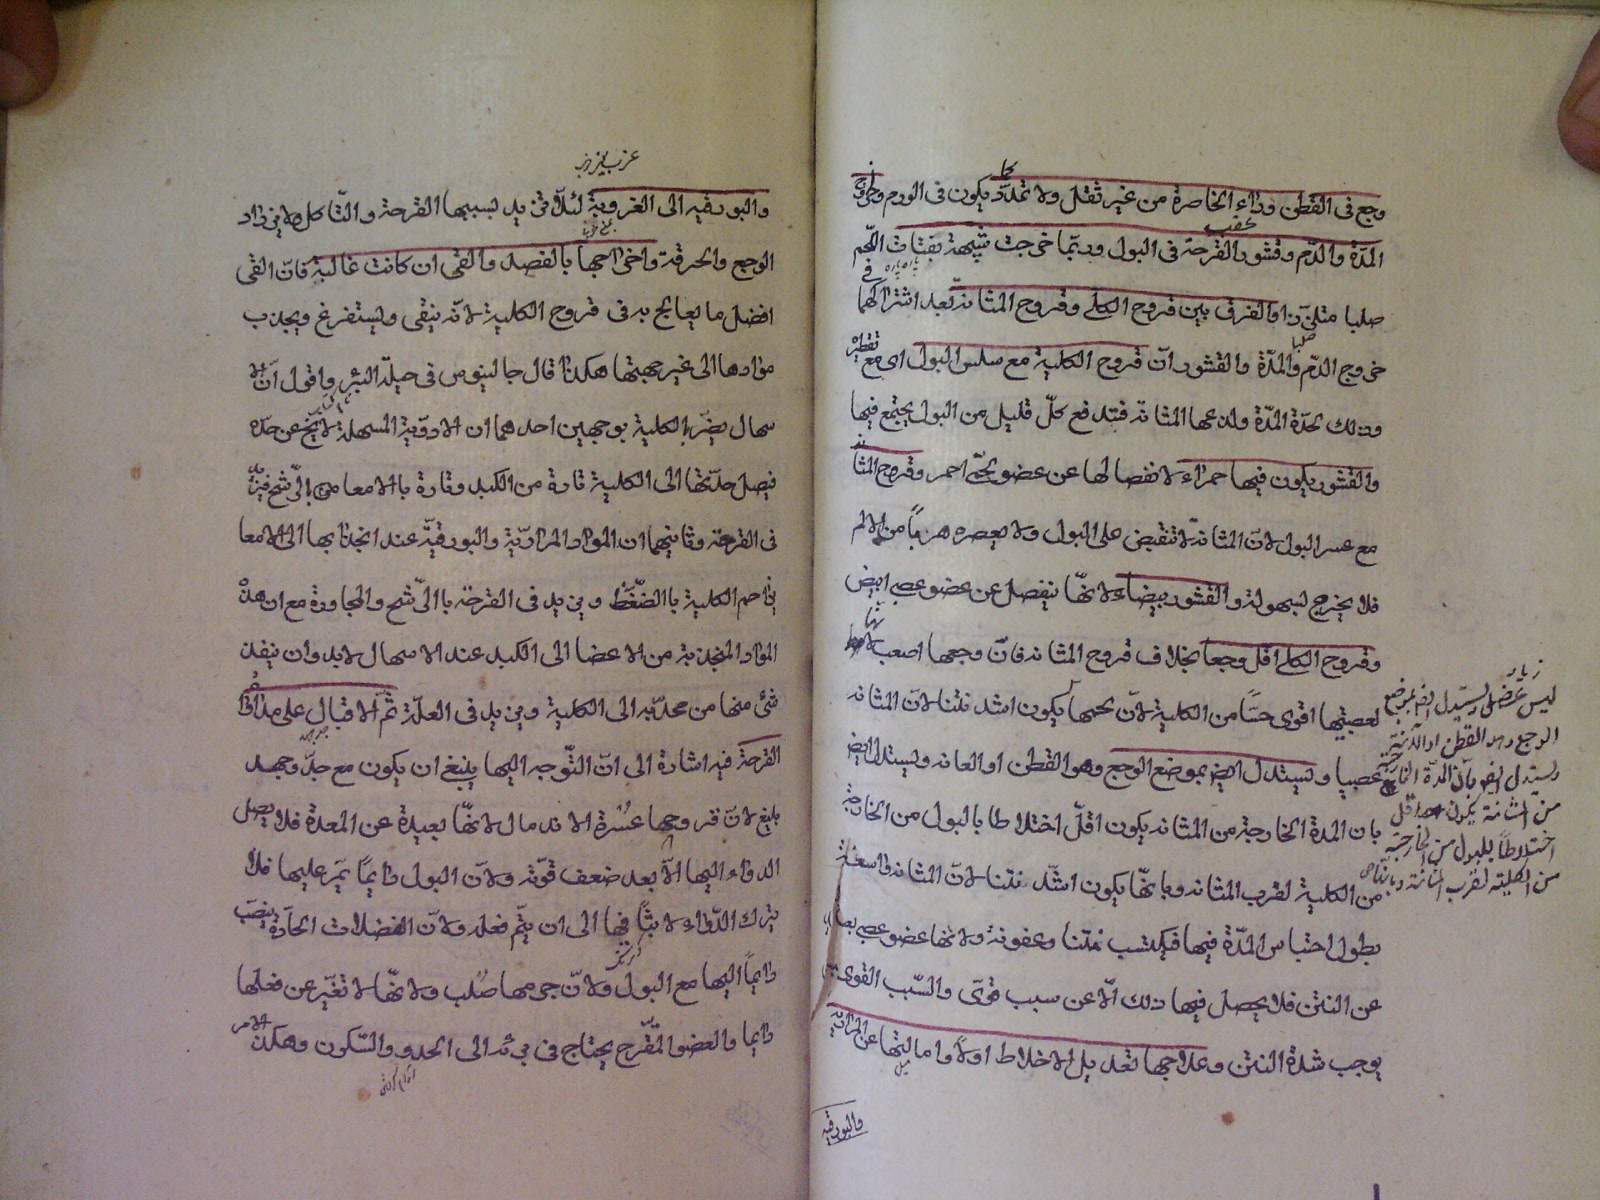 وجع فى القطن وراء الخاصرة من غير ثقل ولا تمدّد يكون فى الورم وخروج
المدّة والدّم وقشور القرحة فى البول وربّما خرجت شبيهة بفتات اللّحم
صلبا والفرق بين قروح الكلى وقروح المثانة بعد اشتراكهما فى
خروج الدّم والمدّة والقشور انّ قروح الكلية مع سلس البول اى مع تقطيره
وذلك لحدّة المدّة ولذعها المثانة فتدفع كلّ قليل من البول يجتمع فيها
والقشور يكون فيها حمراء لانفصالها عن عضو لحمّى احمر وقروح المثانة
مع عسر البول لانّ المثانة لا تنقبض على البول ولا يعصره هرباً من الالم
فلا يخرج بسهولة والقشور بيضاء لانّها ينفصل عن عضو عصبى ابيض
وقروح الكلى اقل وجعاً بخلاف قروح المثانة فانّ وجعها اصعب لانّها
لعصبيتها اقوى حسّاً من الكلية لانّ لحمها يكون اشد نتنا لانّ المثانة
عصبيا ويستدل ايضا بموضع الوجع وهو القطن او العانة ويستدل ايضا
بان المدة الخارجة من المثانة يكون اقلّ اختلاطا بالبول من الخارجة
من الكلية لقرب المثانة وبانّها يكون اشدّ نتنا لانّ المثانة واسعة
يطول احتباس المدّة فيها فيكتسب نتنا وعفونة ولانها عضو عصبى بعيد
عن النتن فلا يحصل فيها ذلك الّا عن سبب قوّى والسّبب القوى
يوجب شدة النتن وعلاجها تعديل الاخلاط اولاً وامالتها عن المراريّة
والبورقيه
ليس غرضى يستدل ايضا بموضع
الوجع وهو القطن او العانة
ويستدل ايضا بانّ المدّة الخارجة
من المثانة يكون اقل
اختلاطاً بالبول من الخارجة
من الكلية لقرب المثانة وبانّها
والبورقيه الى العذوبة لئلّا تزيد بسببها القرحة والتّاكل ولا يزداد
الوجع والحرقة واخراجها بالفصد والقى ان كانت غالبة فانّ القى
افضل ما يعالج به فى قروح الكلية لانّه ينقى ويستفرغ ويجذب
موادها الى غير جهتها هكذا قال جالينوس فى حيلة البرء واقول انّ الا
سهال يضرّ بالكلية بوجهين احدهما ان الادوية المسهلة لا يخ عن حدّة
فيصل حدّتها الى الكلية تارة من الكبد وتارة بالامعا فيزيد
فى القرحة وثانيهما ان المواد المراريّة والبورقيّة عند انجذابها الى الامعا
يزاحم الكلية باالضّغط ويزيد فى القرحة باالّرشح والمجاورة مع ان هذه
المواد المنجذبة من الاعضا الى الكبد عند الاسهال لا بد وان ينفذ
شئ منها من محدّبه الى الكلية ويزيد فى العلّة ثمّ الاقبال على مداواة
القرحة فيه اشارة الى انّ التّوجه اليها ينبغى ان يكون مع جدّ وجهد
بليغ لانّ قروحها عسرة الاندمال لانّها بعيدة عن المعدة فلا يصل
الدواء اليها الّا بعد ضعف قوّته ولانّ البول دايماً يمّر عليها فلا
يترك الدّواء لابثاً فيها الى ان يتّم فعله ولانّ الفضلات الحادّة ينصبّ
دايماً اليها مع البول ولانّ جرمها صُلب ولانّها لا تفتّر عن فعلها
دايما والعضو المتّقرح يحتاج فى برئه الى الهدو والسّكون وهكذا الامر